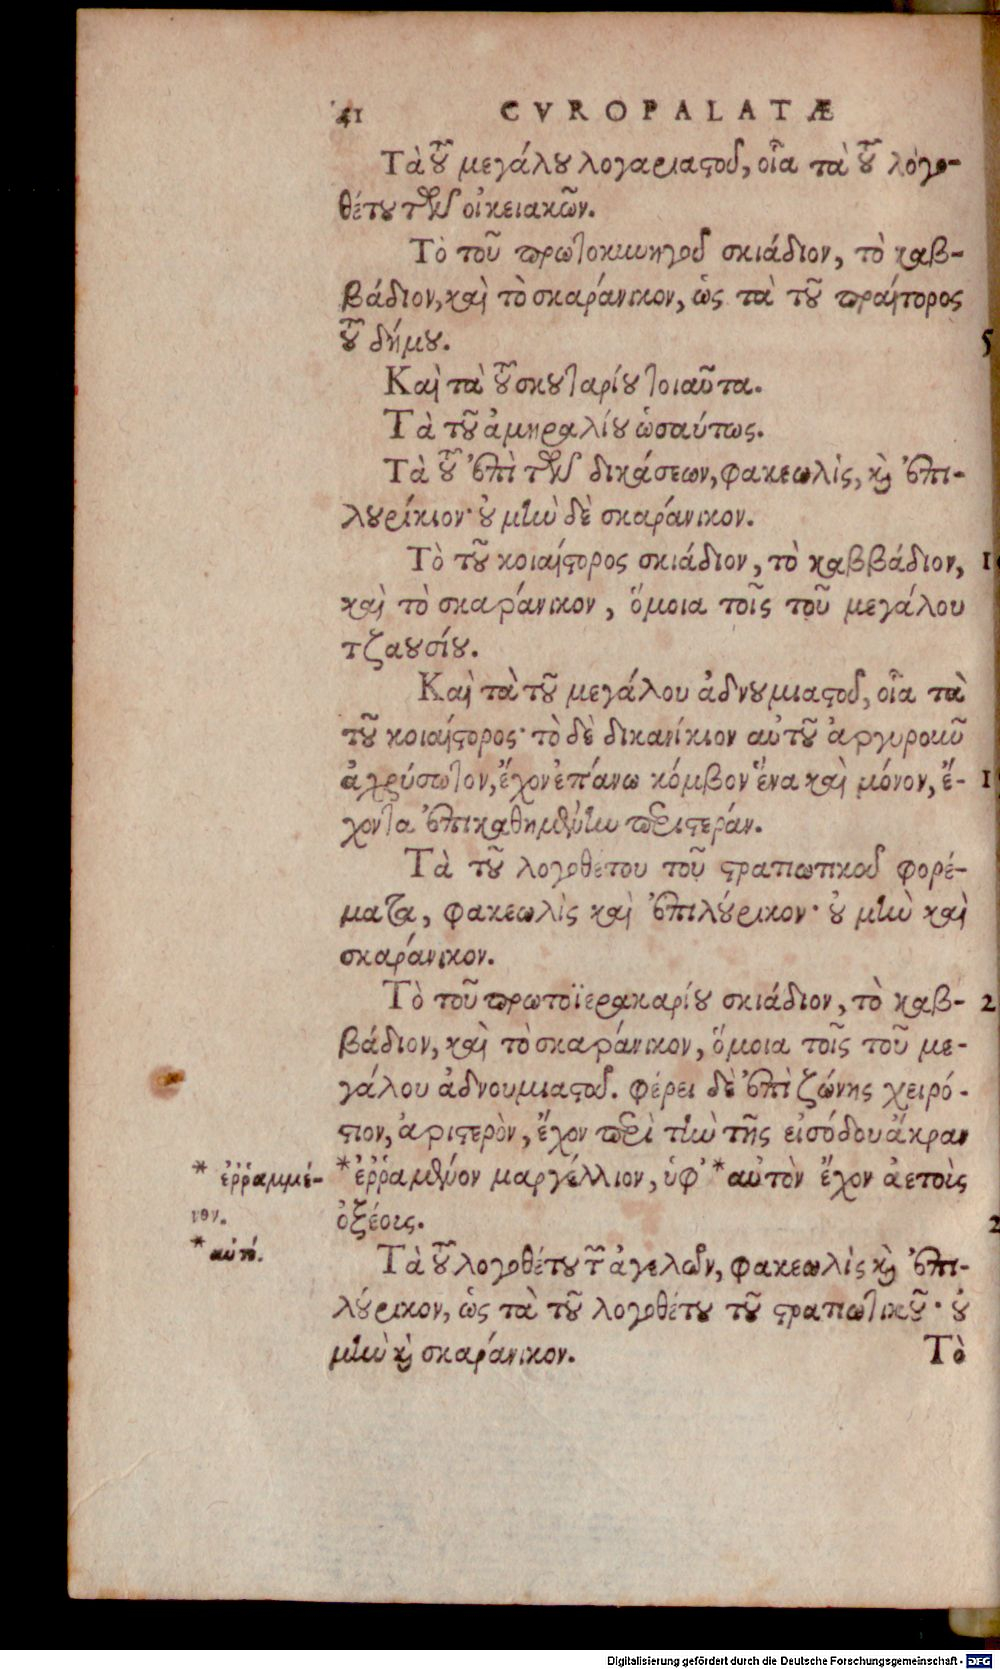 41 CVROPALATÆ
Τὰ τοῦ μεγάλου λογαριαστοῦ, οἷα τὰ τοῦ λογο-
θέτου τῶν οἰκειακῶν.
Τὸ τοῦ πρωτοκυνηγοῦ σκιάδιον, τὸ καβ-
βάδιον, καὶ τὸ σκαράνικον, ὡς τὰ τοῦ πραίτορος
τοῦ δήμου.
5
Καὶ τὰ τοῦ σκουταρίου τοιαῦτα.
Τὰ τοῦ ἀμηραλίου ὡσαύτως.
Τὰ τοῦ ἐπὶ τῶν δικάσεων, φακεωλὶς, καὶ ἐπι-
λουρίκιον· οὐ μὴν δὲ σκαράνικον.
Τὸ τοῦ κοιαίστορος σκιάδιον, τὸ καββάδιον,
καὶ τὸ σκαράνικον, ὅμοια τοῖς τοῦ μεγάλου
τζαουσίου.
Καὶ τὰ τοῦ μεγάλου ἀδνουμιαστοῦ, οἷα τὰ
τοῦ κοιαίστορος· τὸ δὲ δικανίκιον αὐτοῦ ἀργυροκοῦ
ἀχρύσωτον, ἔχον ἐπάνω κόμβον ἕνα καὶ μόνον, ἔ-
χοντα ἐπικαθημένην περιστεράν.
Τὰ τοῦ λογοθέτου τοῦ στρατιωτικοῦ φορέ-
ματα, φακεωλὶς καὶ ἐπιλούρικον· οὐ μὴν καὶ
σκαράνικον.
Τὸ τοῦ πρωτοϊερακαρίου σκιάδιον, τὸ καβ-
2
βάδιον, καὶ τὸ σκαράνικον, ὅμοια τοῖς τοῦ με-
γάλου ἀδνουμιαστοῦ. φέρει δὲ ἐπὶ ζώνης χειρό-
τιον, ἀριστερὸν, ἔχον περὶ τὴν τῆς εἰσόδου ἄκραν
* ἐῤῥαμμένον μαργέλλιον, ὑφ' * αὐτὸν ἔχον ἀετοὶς
ὀξέοις.
* ἐῤῥαμμέ-
νον.
* αὐτό.
2
Τὰ τοῦ λογοθέτου τῶν ἀγελῶν, φακεωλὶς καὶ ἐπι-
λούρικον, ὡς τὰ τοῦ λογοθέτου τοῦ στρατιωτικοῦ· οὐ
μὴν καὶ σκαράνικον.
Τὸ
Digitalisierung gefördert durch die Deutsche Forschungsgemeinschaft - DFG